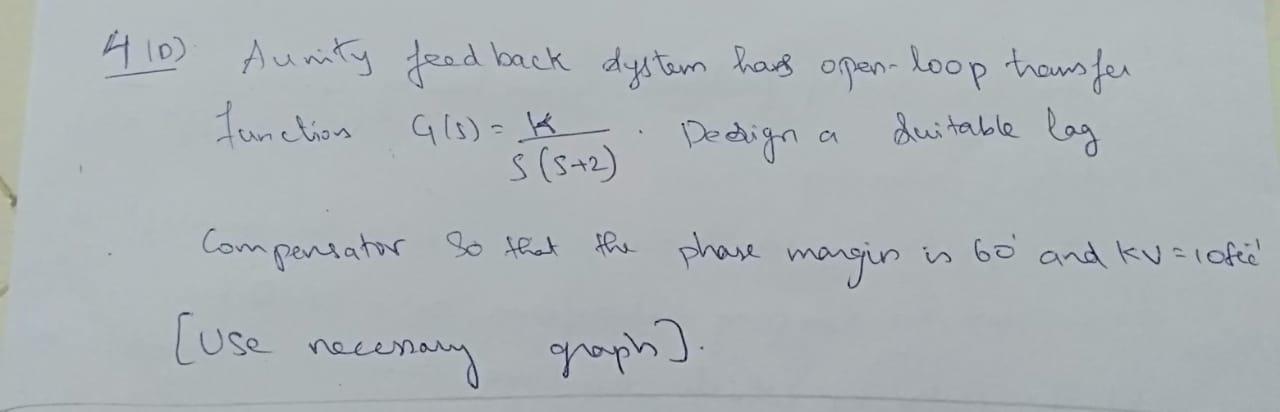 4 10) A unity feed back system has open-loop transfer
function G(s) = K / S(S+2) . Design a suitable lag
Compensator So that the phase margin is 60° and KV = 10 sec⁻¹
[Use necessary graph].